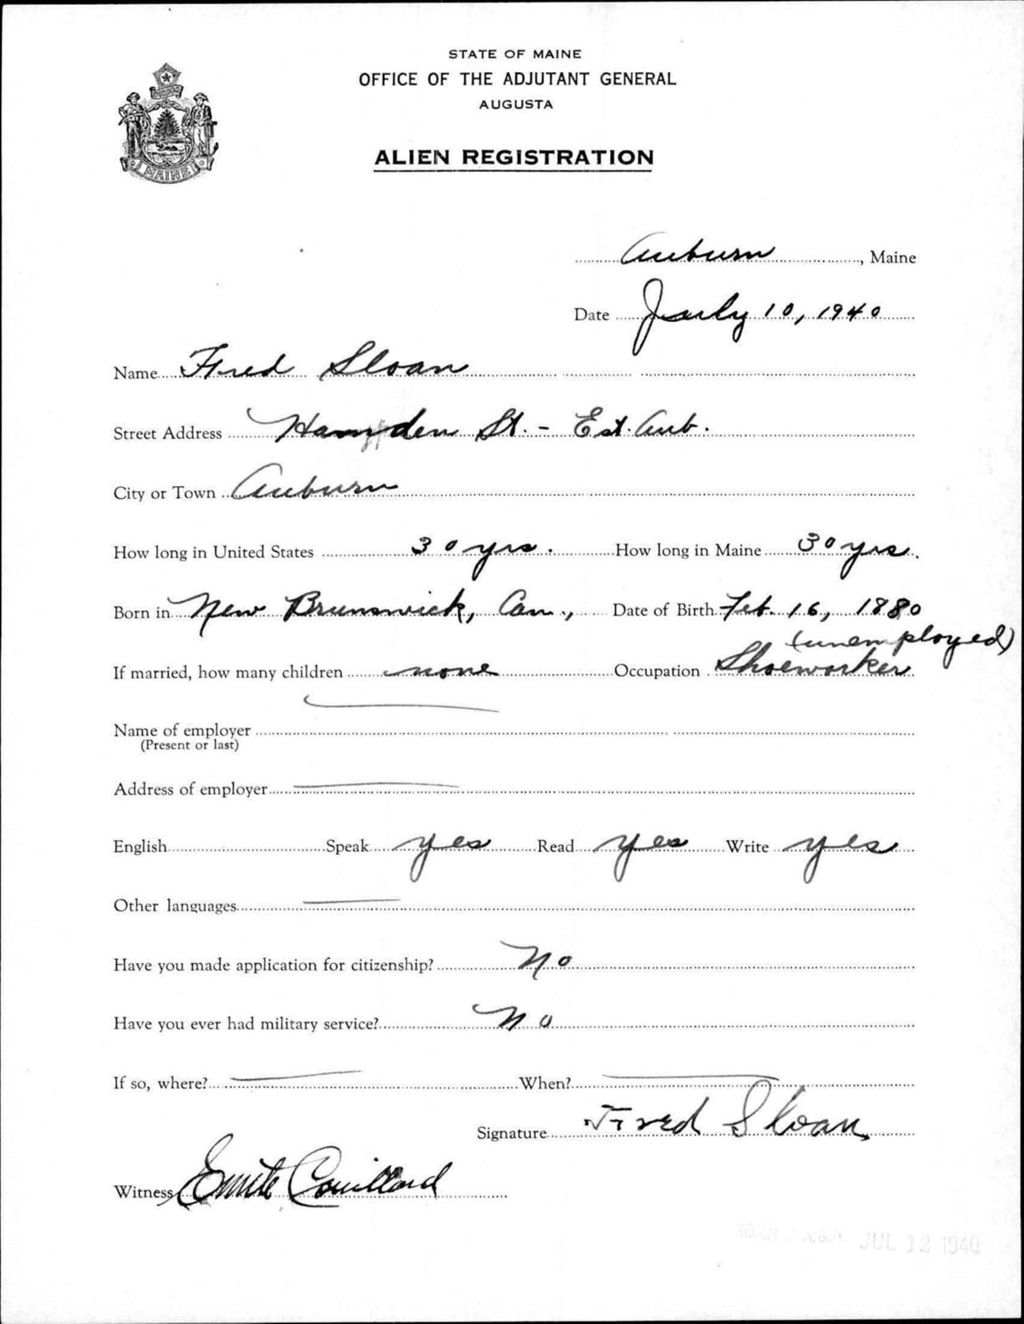 STATE OF MAINE
OFFICE OF THE ADJUTANT GENERAL
AUGUSTA
ALIEN REGISTRATION
MAINE
Auburn, Maine
Date July 10, 1940
Name Fred Sloan
Street Address Hampden St. - Est. Aub.
City or Town Auburn
How long in United States 30 yrs. How long in Maine 30 yrs.
Born in New Brunswick, Can., Date of Birth Feb. 16, 1880
(unemployed)
If married, how many children none Occupation Shoeworker
Name of employer
(Present or last)
Address of employer
English Speak yes Read yes Write yes
Other languages
Have you made application for citizenship? No
Have you ever had military service? No
If so, where? When?
Signature Fred Sloan
Witness Emile Couillard
JUL 12 1940